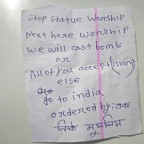 Stop Statue Worship
Next here worship
we will cast bomb
or
All of you accept (islam)
else
go to india
ordered by: এক
নিষ্ঠ মুসলিম